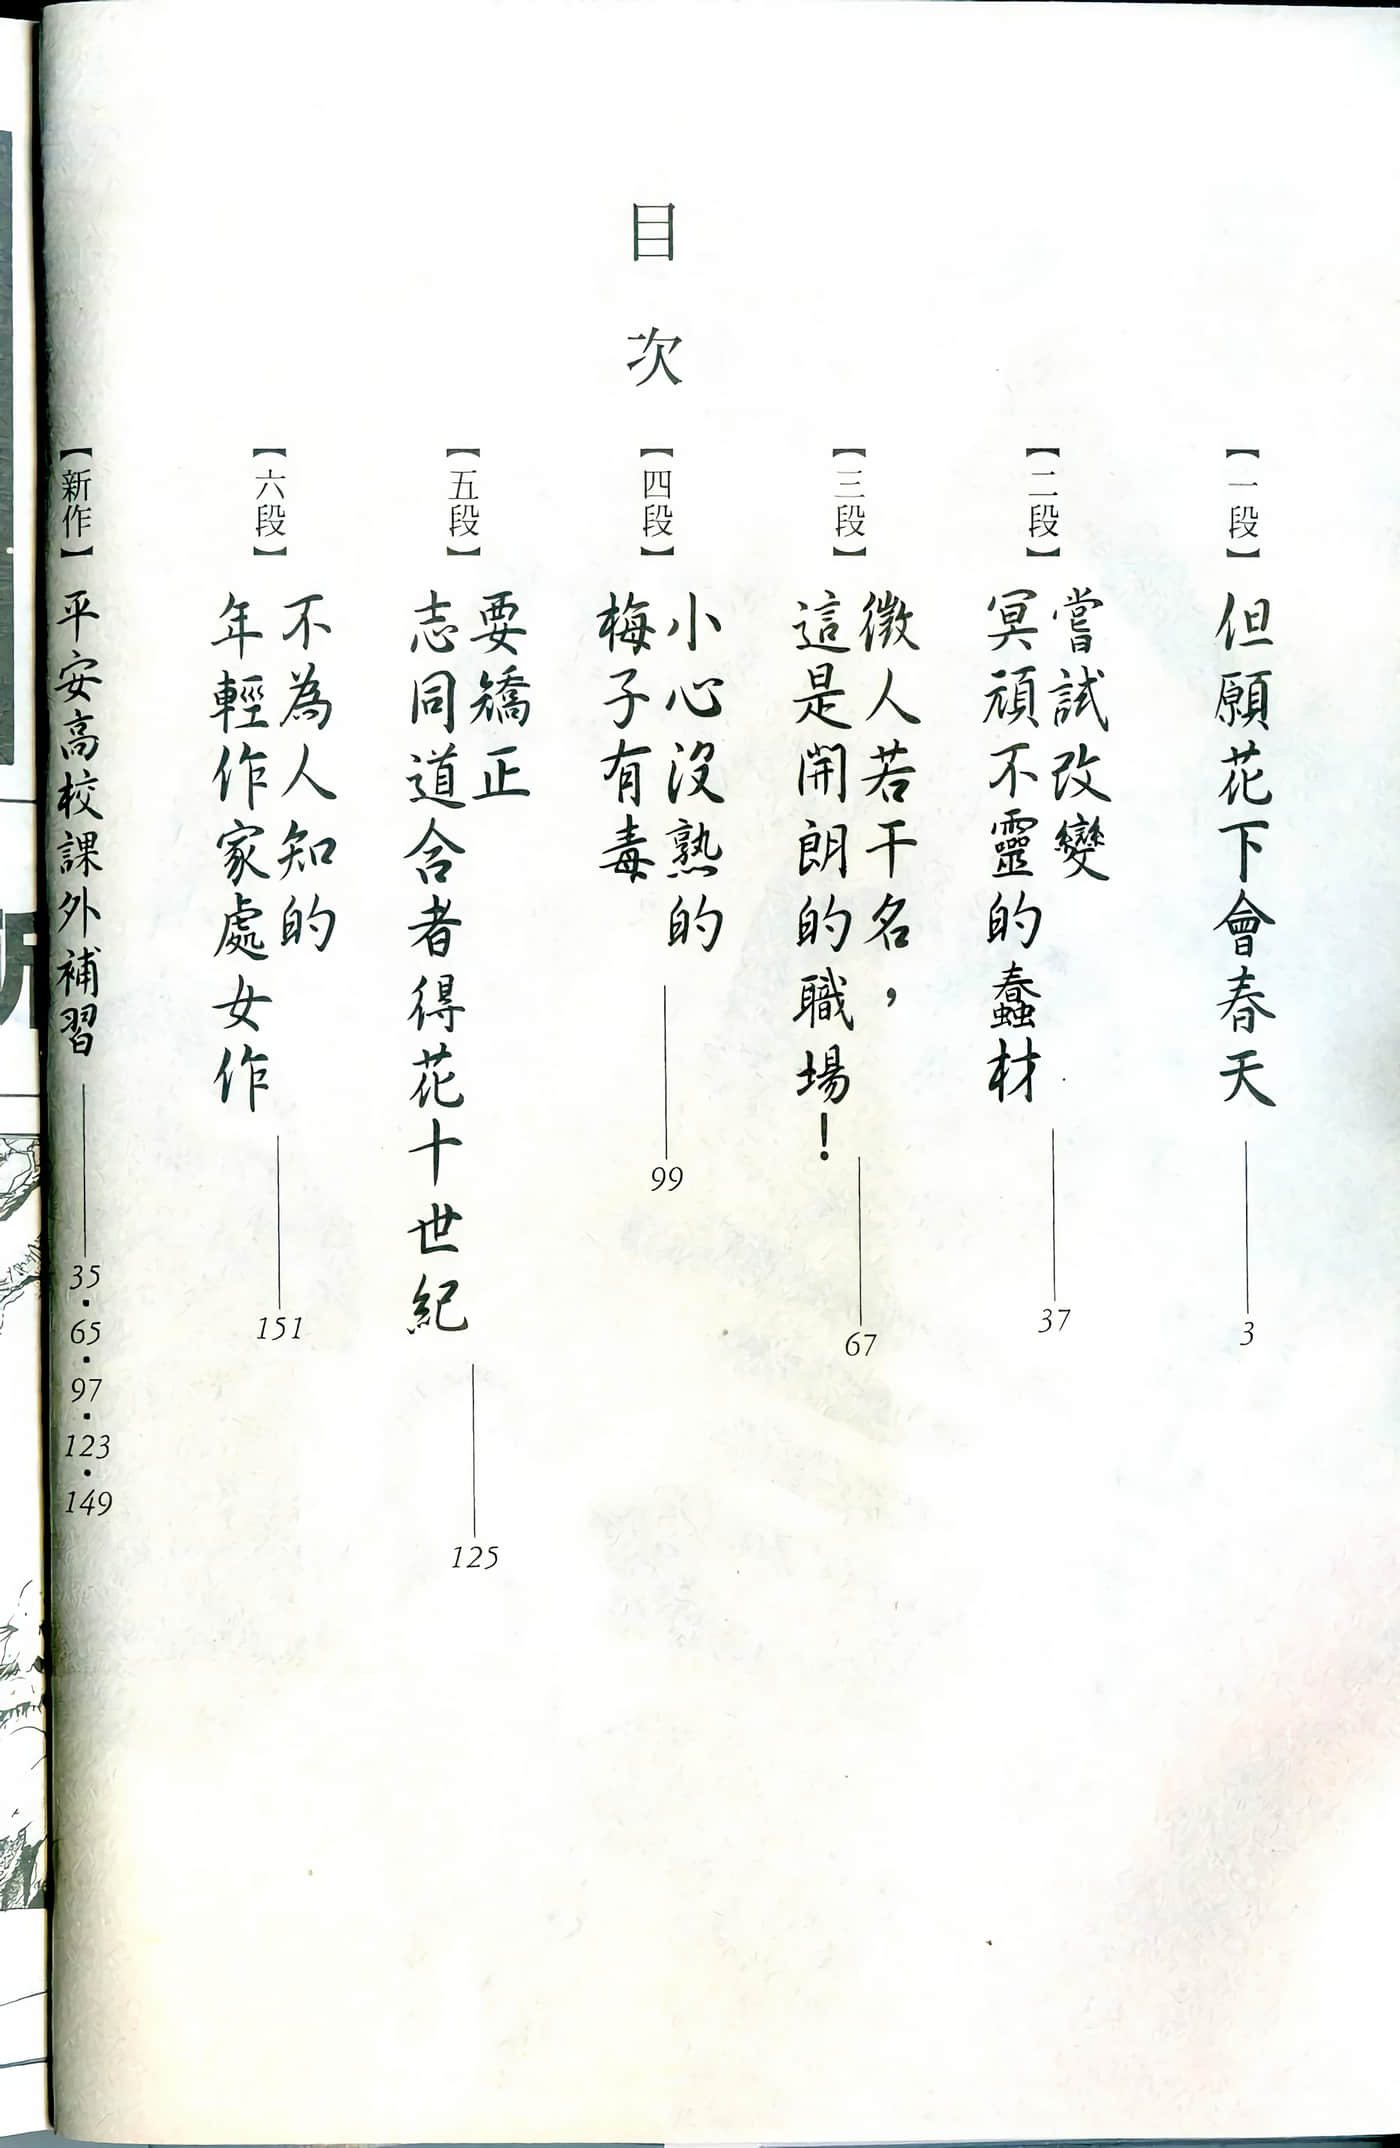 目次
【一段】
但願花下會春天
3
【二段】
嘗試改變
冥頑不靈的蠢材
37
【三段】
徵人若干名，
這是開朗的職場！
67
【四段】
小心沒熟的
梅子有毒
99
【五段】
要矯正
志同道合者得花十世紀
125
【六段】
不為人知的
年輕作家處女作
151
【新作】平安高校課外補習
35・65・97・123・149